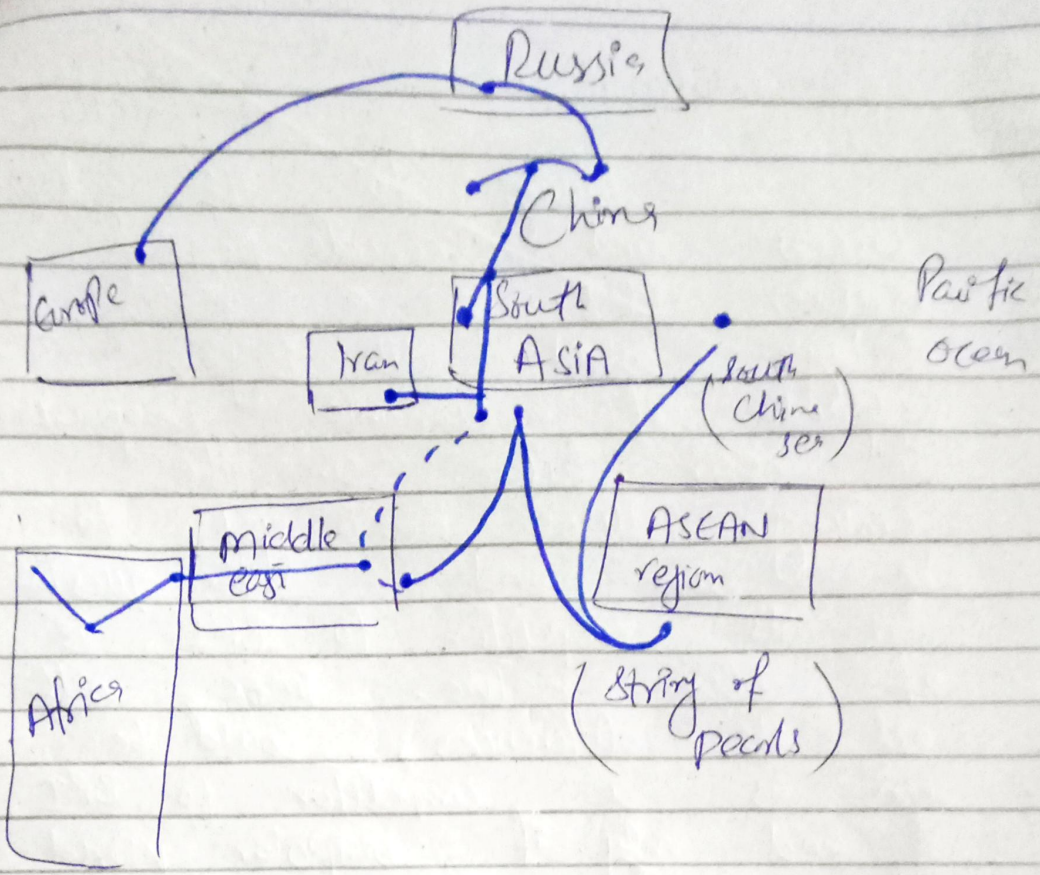 Russia
China
Europe
South
ASIA
Iran
Pacific
Ocean
(South
China
sea)
Middle
east
ASEAN
region
Africa
(String of
pearls)